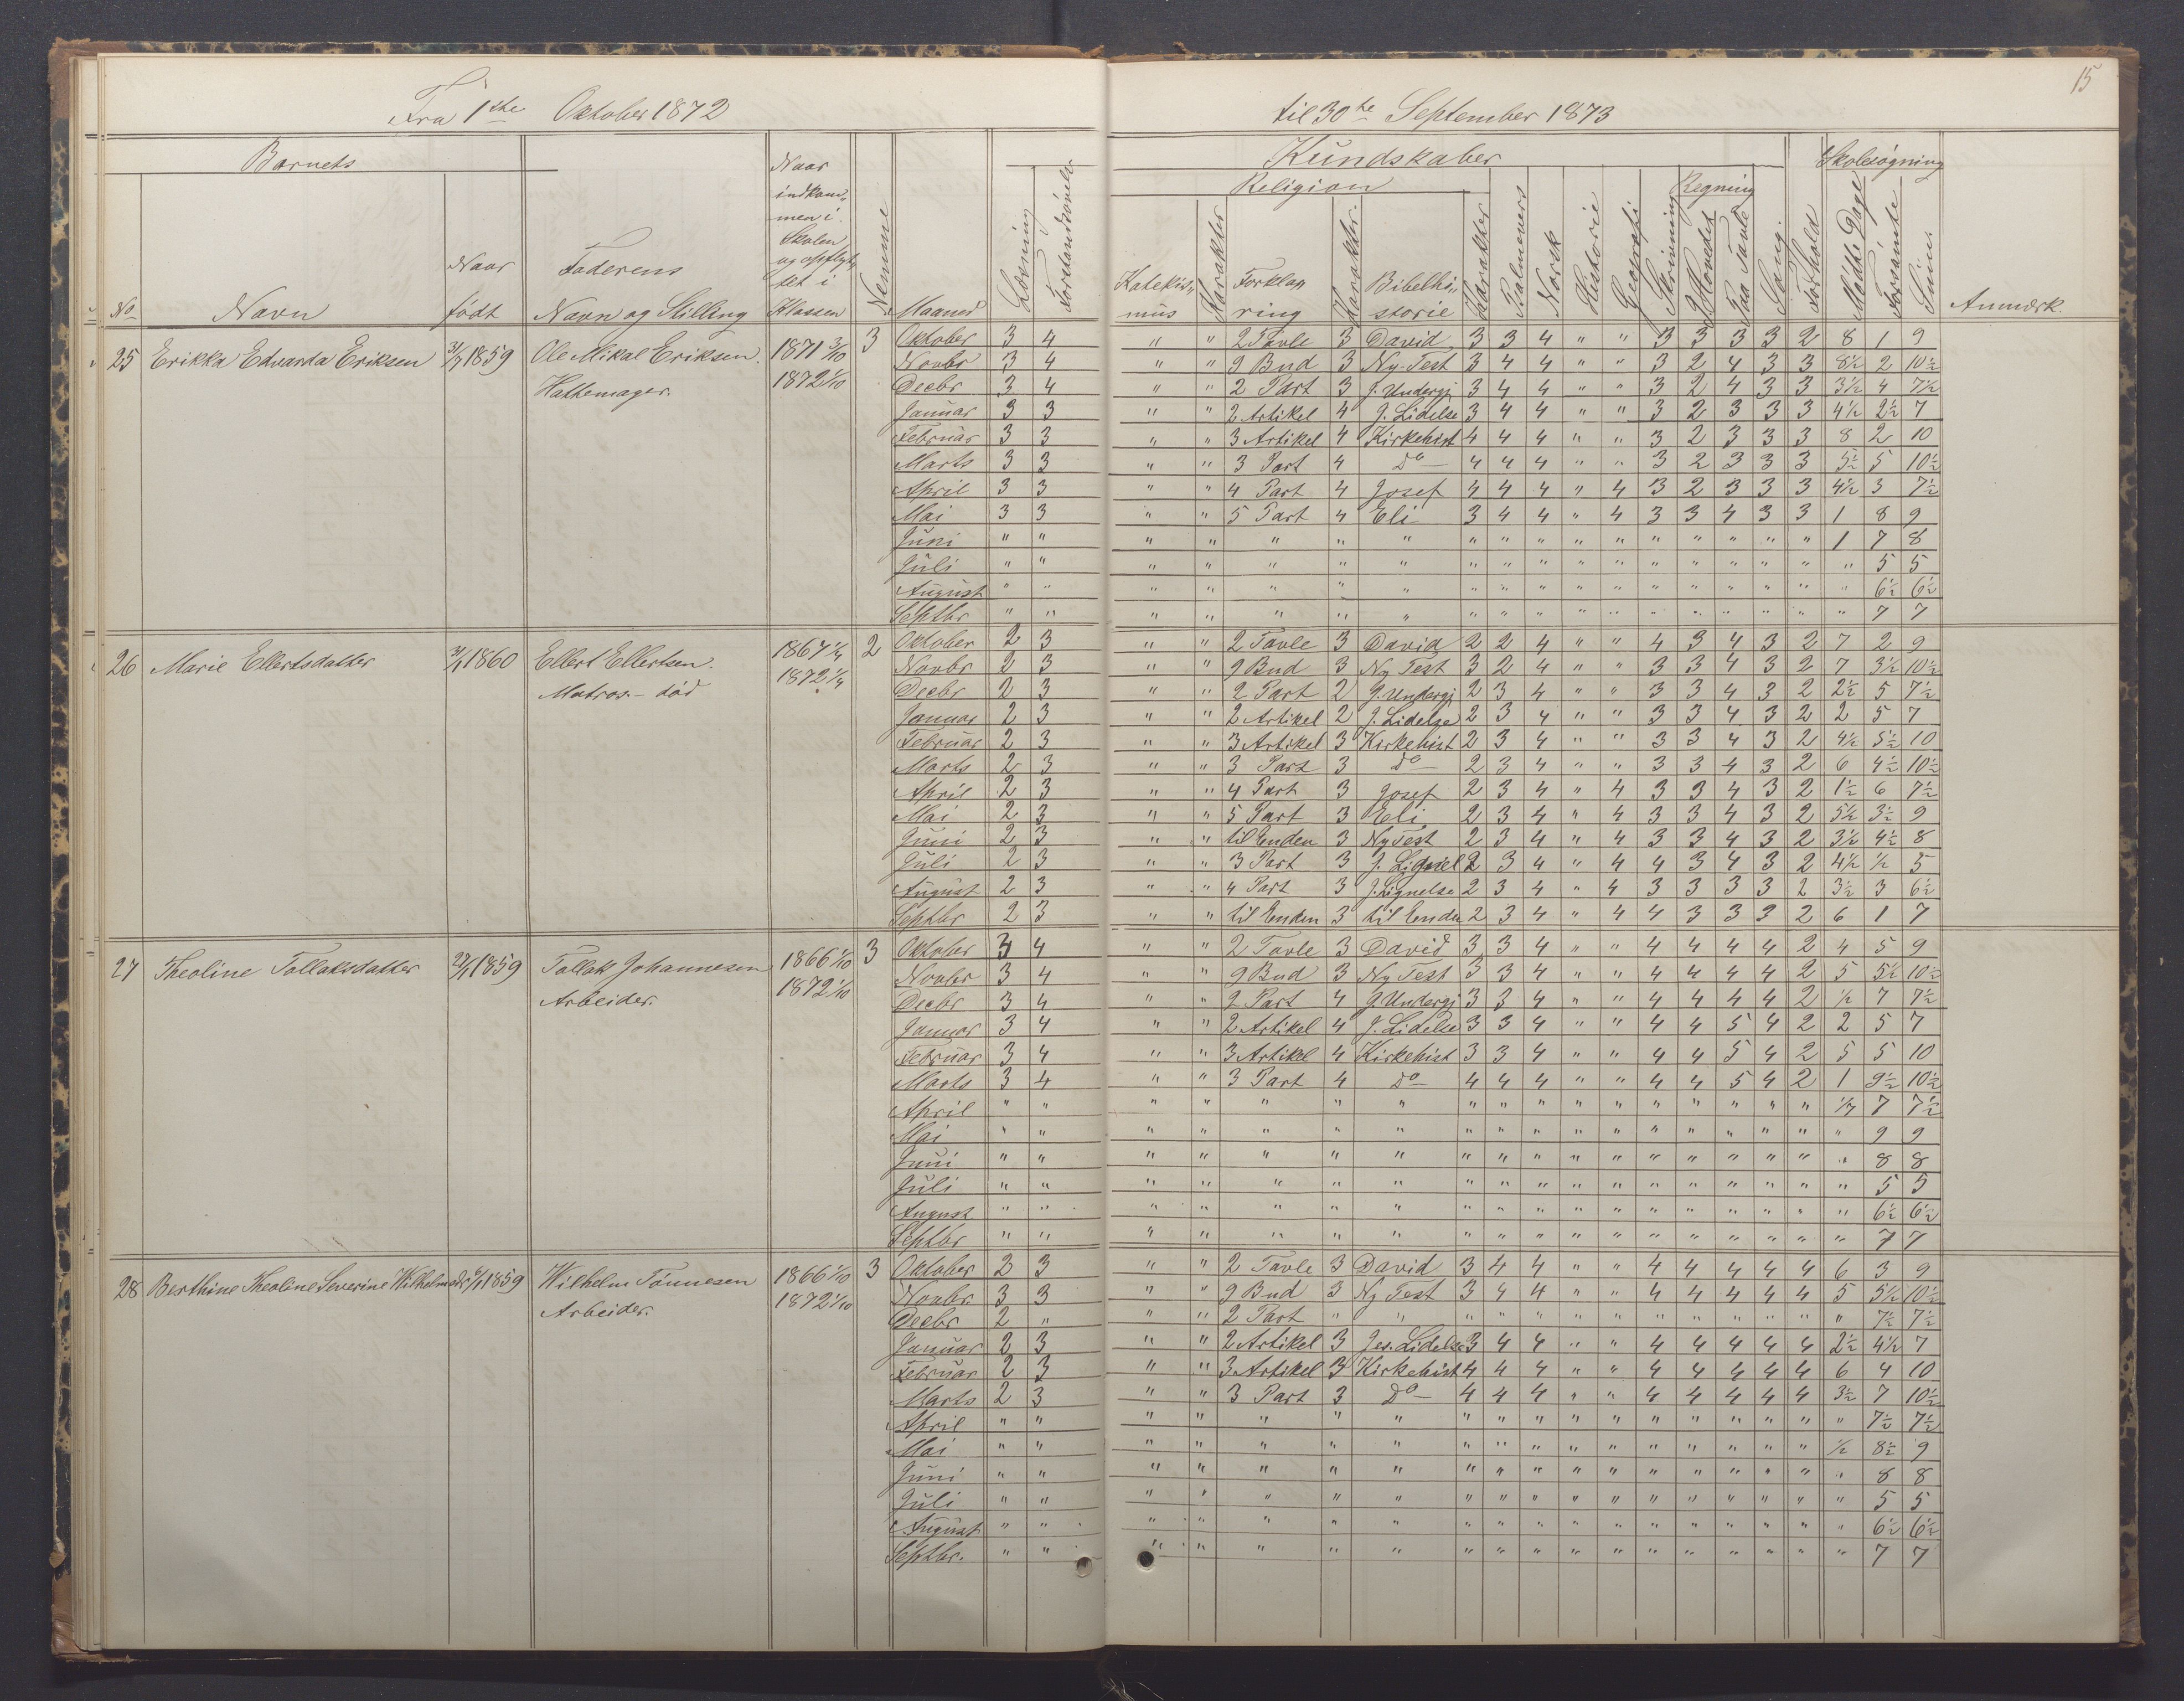 Fra 1ste Oktober 1872 til 30te September 1873
15
Barnets Kundskaber Skolesøgning
Religion Regning
No Navn Naar født Faderens Navn og Stilling Naar indkommen i Skolen og opflyttet i Klassen Nemme Maaned Læsning Forstandsøvelse Katekismus Karakter Forklaring Karakter. Bibelhistorie Karakter Psalmevers Norsk Historie Geografi Skrivning I Hovedet Paa Tavle Sang. Forhold Mødte Dage Forsømte Sum. Anmærk.
25 Erikka Edvarda Eriksen 31/7 1859 Ole Mikal Eriksen. 1871 3/10 3 Oktober 3 4 " " 2 Tavle 3 David 3 3 4 " " 3 3 3 3 2 8 1 9
Hattemager. 1872 1/10 Novbr 3 4 " " 9 Bud 3 Ny-Test 3 4 4 " " 3 2 4 3 3 8½ 2 10½
Decbr 3 4 " " 2 Part 3 J. Undergj 3 4 4 " " 3 2 4 3 3 3½ 4 7½
Januar 3 3 " " 2 Artikel 4 J. Lidelse 3 4 4 " " 3 2 3 3 3 4½ 2½ 7
Februar 3 3 " " 3 Artikel 4 Kirkehist 4 4 4 " " 3 2 3 3 3 8 2 10
Marts 3 3 " " 3 Part 4 do 4 4 4 " " 3 2 3 3 3 5½ 5 10½
April 3 3 " " 4 Part 4 Josef 4 4 4 " 4 3 2 3 3 3 4½ 3 7½
Mai 3 3 " " 5 Part 4 Eli 3 4 4 " 4 3 3 4 3 3 1 8 9
Juni " " " " " " " " " " " " " " " " " 1 7 8
Juli " " " " " " " " " " " " " " " " " " 5 5
August " " " " " " " " " " " " " " " " " " 6½ 6½
Septbr " " " " " " " " " " " " " " " " " " 7 7
26 Marie Ellertsdatter 1860 Ellert Ellertsen. 1867 2 Oktober 2 3 " " 2 Tavle 3 David 2 2 4 " " 4 3 4 3 2 7 2 9
Matros.- død 1872 Novbr 2 3 " " 9 Bud 3 Ny Test 3 2 4 " " 3 3 4 3 2 7 3½ 10½
Decbr 2 3 " " 2 Part 2 J. Undergj 2 3 4 " " 3 3 4 3 2 2½ 5 7½
Januar 2 3 " " 2 Artikel 2 J. Lidelse 2 3 4 " " 3 3 4 3 2 2 5 7
Februar 2 3 " " 3 Artikel 3 Kirkehist 2 3 4 " " 3 3 4 3 2 4½ 5½ 10
Marts 2 3 " " 3 Part 3 do 2 3 4 " " 3 3 4 3 2 6 4½ 10½
April 2 3 " " 4 Part 3 Josef 2 3 4 " 4 3 3 4 3 2 1½ 6 7½
Mai 2 3 " " 5 Part 3 Eli 2 3 4 " 4 3 3 4 3 2 5½ 3½ 9
Juni 2 3 " " til Enden 3 Ny Test 2 3 4 " 4 3 3 4 3 2 3½ 4½ 8
Juli 2 3 " " 3 Part 3 J. Lignel 2 3 4 " 4 4 3 4 3 2 4½ ½ 5
August 2 3 " " 4 Part 3 J. Lignelse 2 3 4 " 4 3 3 3 3 2 3½ 3 6½
Septbr 2 3 " " til Enden 3 til Enden 2 3 4 " 4 4 3 3 3 2 6 1 7
27 Theoline Tollaksdatter 1859 Tollak Johannesen 1866 1/10 3 Oktober 3 4 " " 2 Tavle 3 David 3 3 4 " " 4 4 4 4 2 4 5 9
Arbeider. 1872 1/10 Novbr 3 4 " " 9 Bud 3 Ny Test 3 3 4 " " 4 4 4 4 2 5 5½ 10½
Decbr 3 4 " " 2 Part 4 J. Undergj 3 3 4 " " 4 4 4 4 2 ½ 7 7½
Januar 3 4 " " 2 Artikel 4 J. Lidelse 3 3 4 " " 4 4 5 4 2 2 5 7
Februar 3 4 " " 3 Artikel 4 Kirkehist 3 3 4 " " 4 4 5 4 2 5 5 10
Marts 3 4 " " 3 Part 4 do 4 4 4 " " 4 4 5 4 2 1 9½ 10½
April " " " " " " " " " " " " " " " " " 7 7½
Mai " " " " " " " " " " " " " " " " " " 9 9
Juni " " " " " " " " " " " " " " " " " " 8 8
Juli " " " " " " " " " " " " " " " " " " 5 5
August " " " " " " " " " " " " " " " " " " 6½ 6½
Septbr " " " " " " " " " " " " " " " " " " 7 7
28 Berthine Theoline Severine Wilhelmsdr 1859 Wilhelm Tönnesen 1866 1/10 3 Oktober 2 3 " " 2 Tavle 3 David 3 4 4 " " 4 4 4 4 4 6 3 9
Arbeider. 1872 1/10 Novbr. 3 3 " " 9 Bud 3 Ny Test 3 4 4 " " 4 4 4 4 4 5 5½ 10½
Decbr 2 " " " 2 Part " " " " " " " " " " " " " 7½ 7½
Januar 2 3 " " 2 Artikel 3 Jes. Lidelse 3 4 4 " " 4 4 4 4 4 2½ 4½ 7
Februar 2 3 " " 3 Artikel 3 Kirkehist 4 4 4 " " 4 4 4 4 4 6 4 10
Marts 2 3 " " 3 Part 3 do 4 4 4 " " 4 4 4 4 4 3½ 7 10½
April " " " " " " " " " " " " " " " " " " 7½ 7½
Mai " " " " " " " " " " " " " " " " " ½ 8½ 9
Juni " " " " " " " " " " " " " " " " " " 8 8
Juli " " " " " " " " " " " " " " " " " " 5 5
August " " " " " " " " " " " " " " " " " " 6½ 6½
Septbr. " " " " " " " " " " " " " " " " " " 7 7